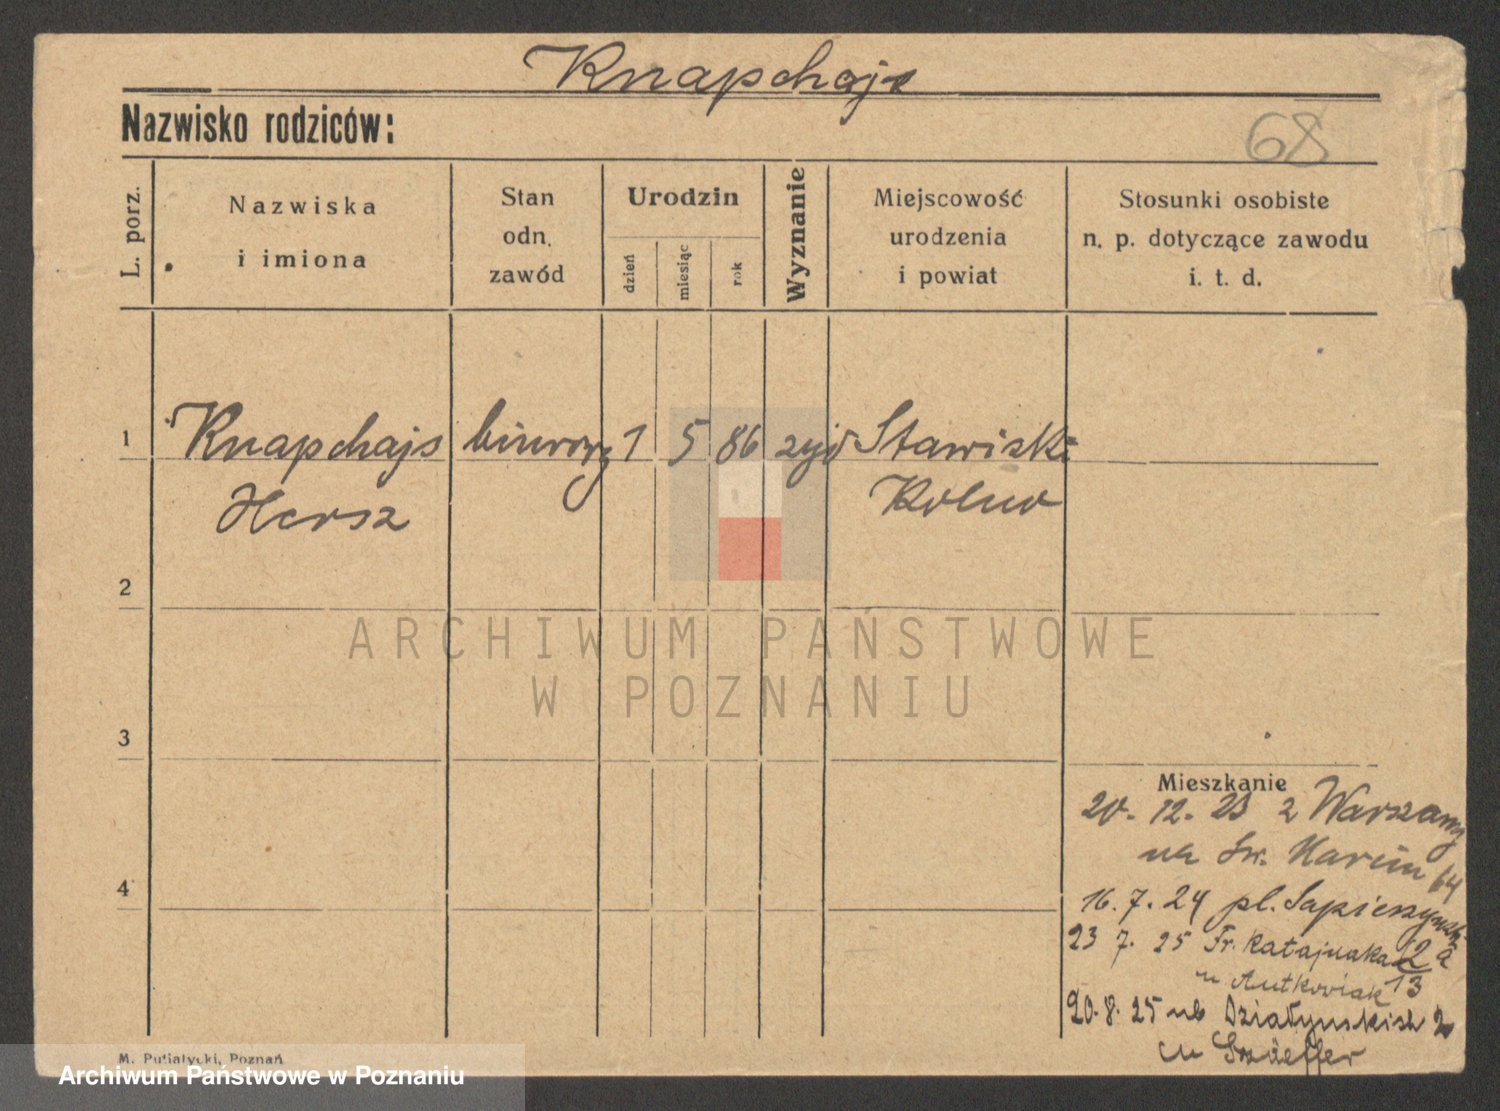 Knapchajs
Nazwisko rodziców:
68
L. porz.
Nazwiska
i imiona
Stan
odn.
zawód
Urodzin
dzień
miesiąc
rok
Wyznanie
Miejscowość
urodzenia
i powiat
Stosunki osobiste
n. p. dotyczące zawodu
i. t. d.
1 Knapchajs biurowy 1 5 86 żyd Stawiski
Hersz Kolno
2
3
4
ARCHIWUM PAŃSTWOWE
W POZNANIU
Mieszkanie
20. 12. 23 z Warszawy
na Św. Marcin 64
16. 7. 24 pl. Sapieżyński
2 a
23 7. 25 Fr. Ratajczaka 13
u Antkowiak
20. 8. 25 Działyńskich 2
u
M. Putiatycki, Poznań
Archiwum Państwowe w Poznaniu